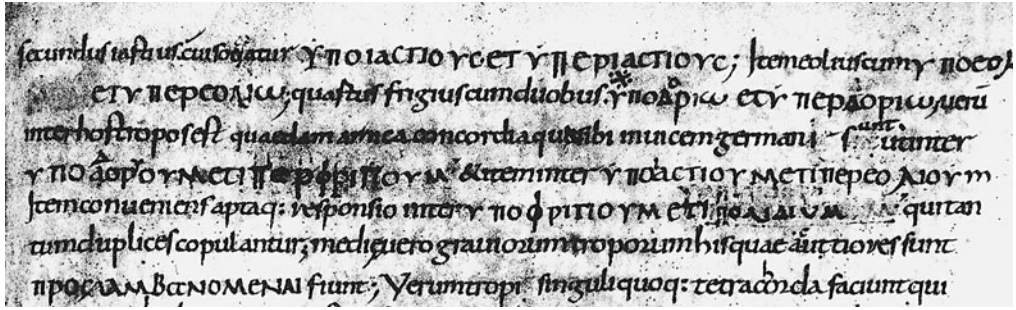 secundus iastius. cui sociatur ΥΠΟΙΑCΤΙΟΥC ΕΤ ΥΠΕΡΙΑCΤΙΟΥC; Item eolius cum
ΕΤ ΥΠΕΡΕΟΛΙω; frigius cum duobus. ΕΤ ΥΠΕΡΔΟΡΙω; uerū
inter hos tropos est quaedam amica concordia qua sibi inuicem germani sunt. ut inter
&item inter ΥΠΟΙΑCΤΙΟΥΜ ΕΤ ΥΠΕΡΕΟΛΙΟΥm
Item conueniens aptaq: responsio inter ΥΠΟΦΡΙΓΙΟΥΜ ΕΤ qui tan
tum duplices copulantur; medii uero grauiorum troporum his quae acutiores sunt
ΠΡΟCΛΑΜΒΑΝΟΜΕΝΑΙ fiunt; Verum tropi singuli quoq: tetrachorda faciunt qui